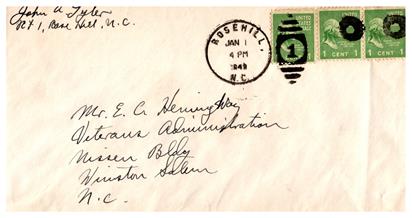 John A Teeter
Rt 1, Rose Hill, N.C.
ROSEHILL,
JAN 1
4 PM
1949
N.C.
1
UNITED STATES
1 CENT 1
1 CENT 1
Mr. E. C. Hemingway
Veterans Administration
Nissen Bldg
Winston Salem
N.C.